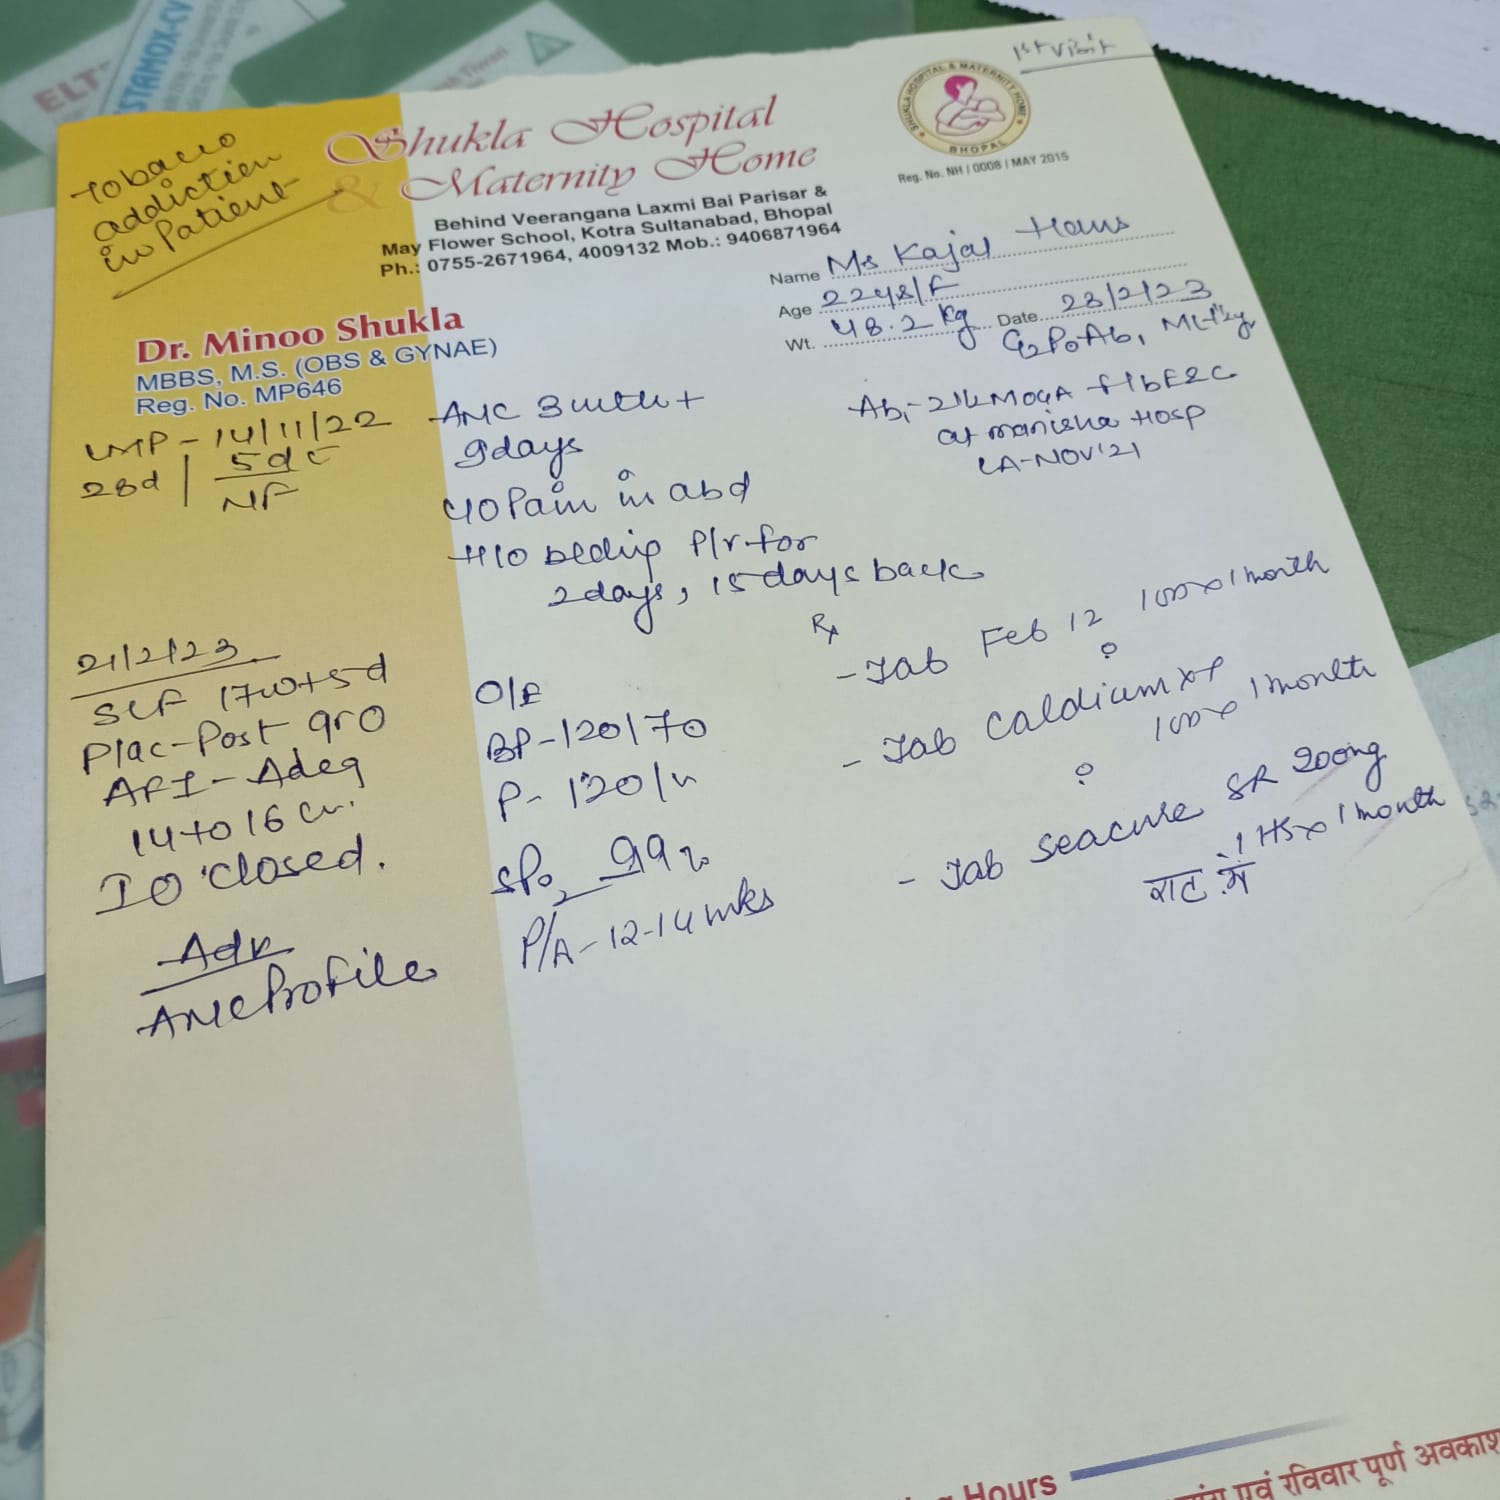 1st visit
Tobacco
addiction
in Patient
Shukla Hospital
& Maternity Home
Behind Veerangana Laxmi Bai Parisar &
May Flower School, Kotra Sultanabad, Bhopal
Ph.: 0755-2671964, 4009132 Mob.: 9406871964
SHUKLA HOSPITAL & MATERNITY HOME
BHOPAL
Reg. No. NH / 0008 / MAY 2015
Name Ms Kajal Hans
Age 22 /F
Wt. 48.2 kg Date 23/2/23
G2P0Ab1
Dr. Minoo Shukla
MBBS, M.S. (OBS & GYNAE)
Reg. No. MP646
LMP - 14/11/22
28d | 5d
NF
ANC 3 mth +
9days
Ab1 - MOGA f/b E&C
at Manisha Hosp
LA - NOV'21
c/o Pain in abd
H/o bleding P/V for
2days, 15 days back
21/2/23
SLF 17w+5d
Plac-Post gr0
AFI - Adeq
14 to 16 cm.
IO closed.
Adv
ANC Profile
O/E
BP - 120/70
P - 120/
SPO2 99%
P/A - 12-14 wks
Rx
- Tab Feb 12 1 OD x 1 month
- Tab Caldium XT
1 OD x 1 month
- Tab Seacure SR 200mg
1 HS x 1 month
रात में
Hours
एवं रविवार पूर्ण अवकाश
ELT
STAMOX-CV